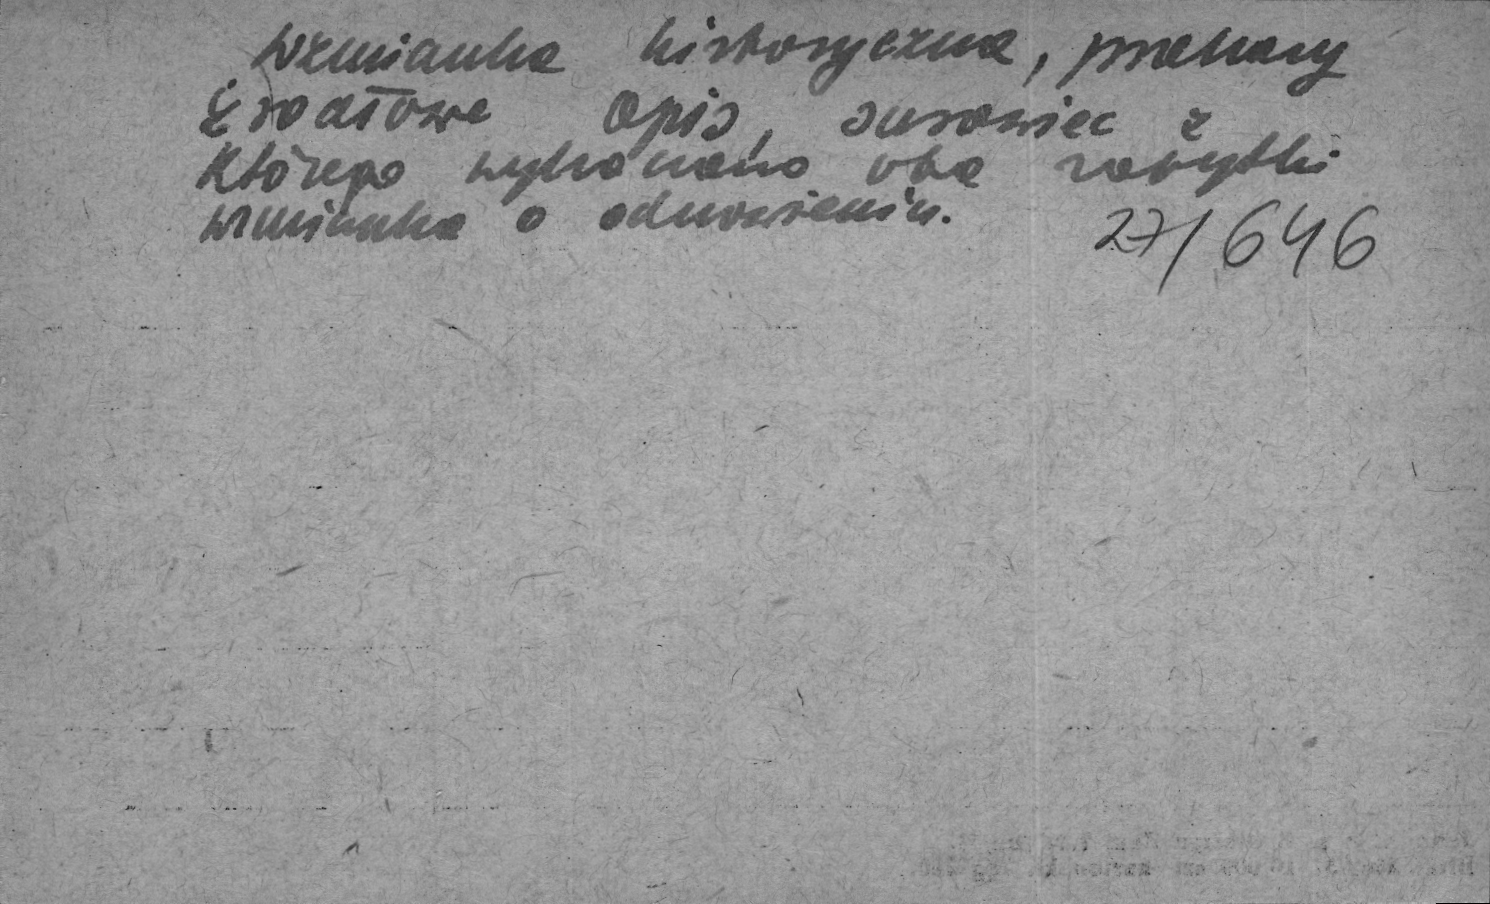 wzmianka historyczna, przekazy
źródłowe opis, surowiec z
którego wykonano oba zabytki
wzmianka o odnowieniu.
27/646